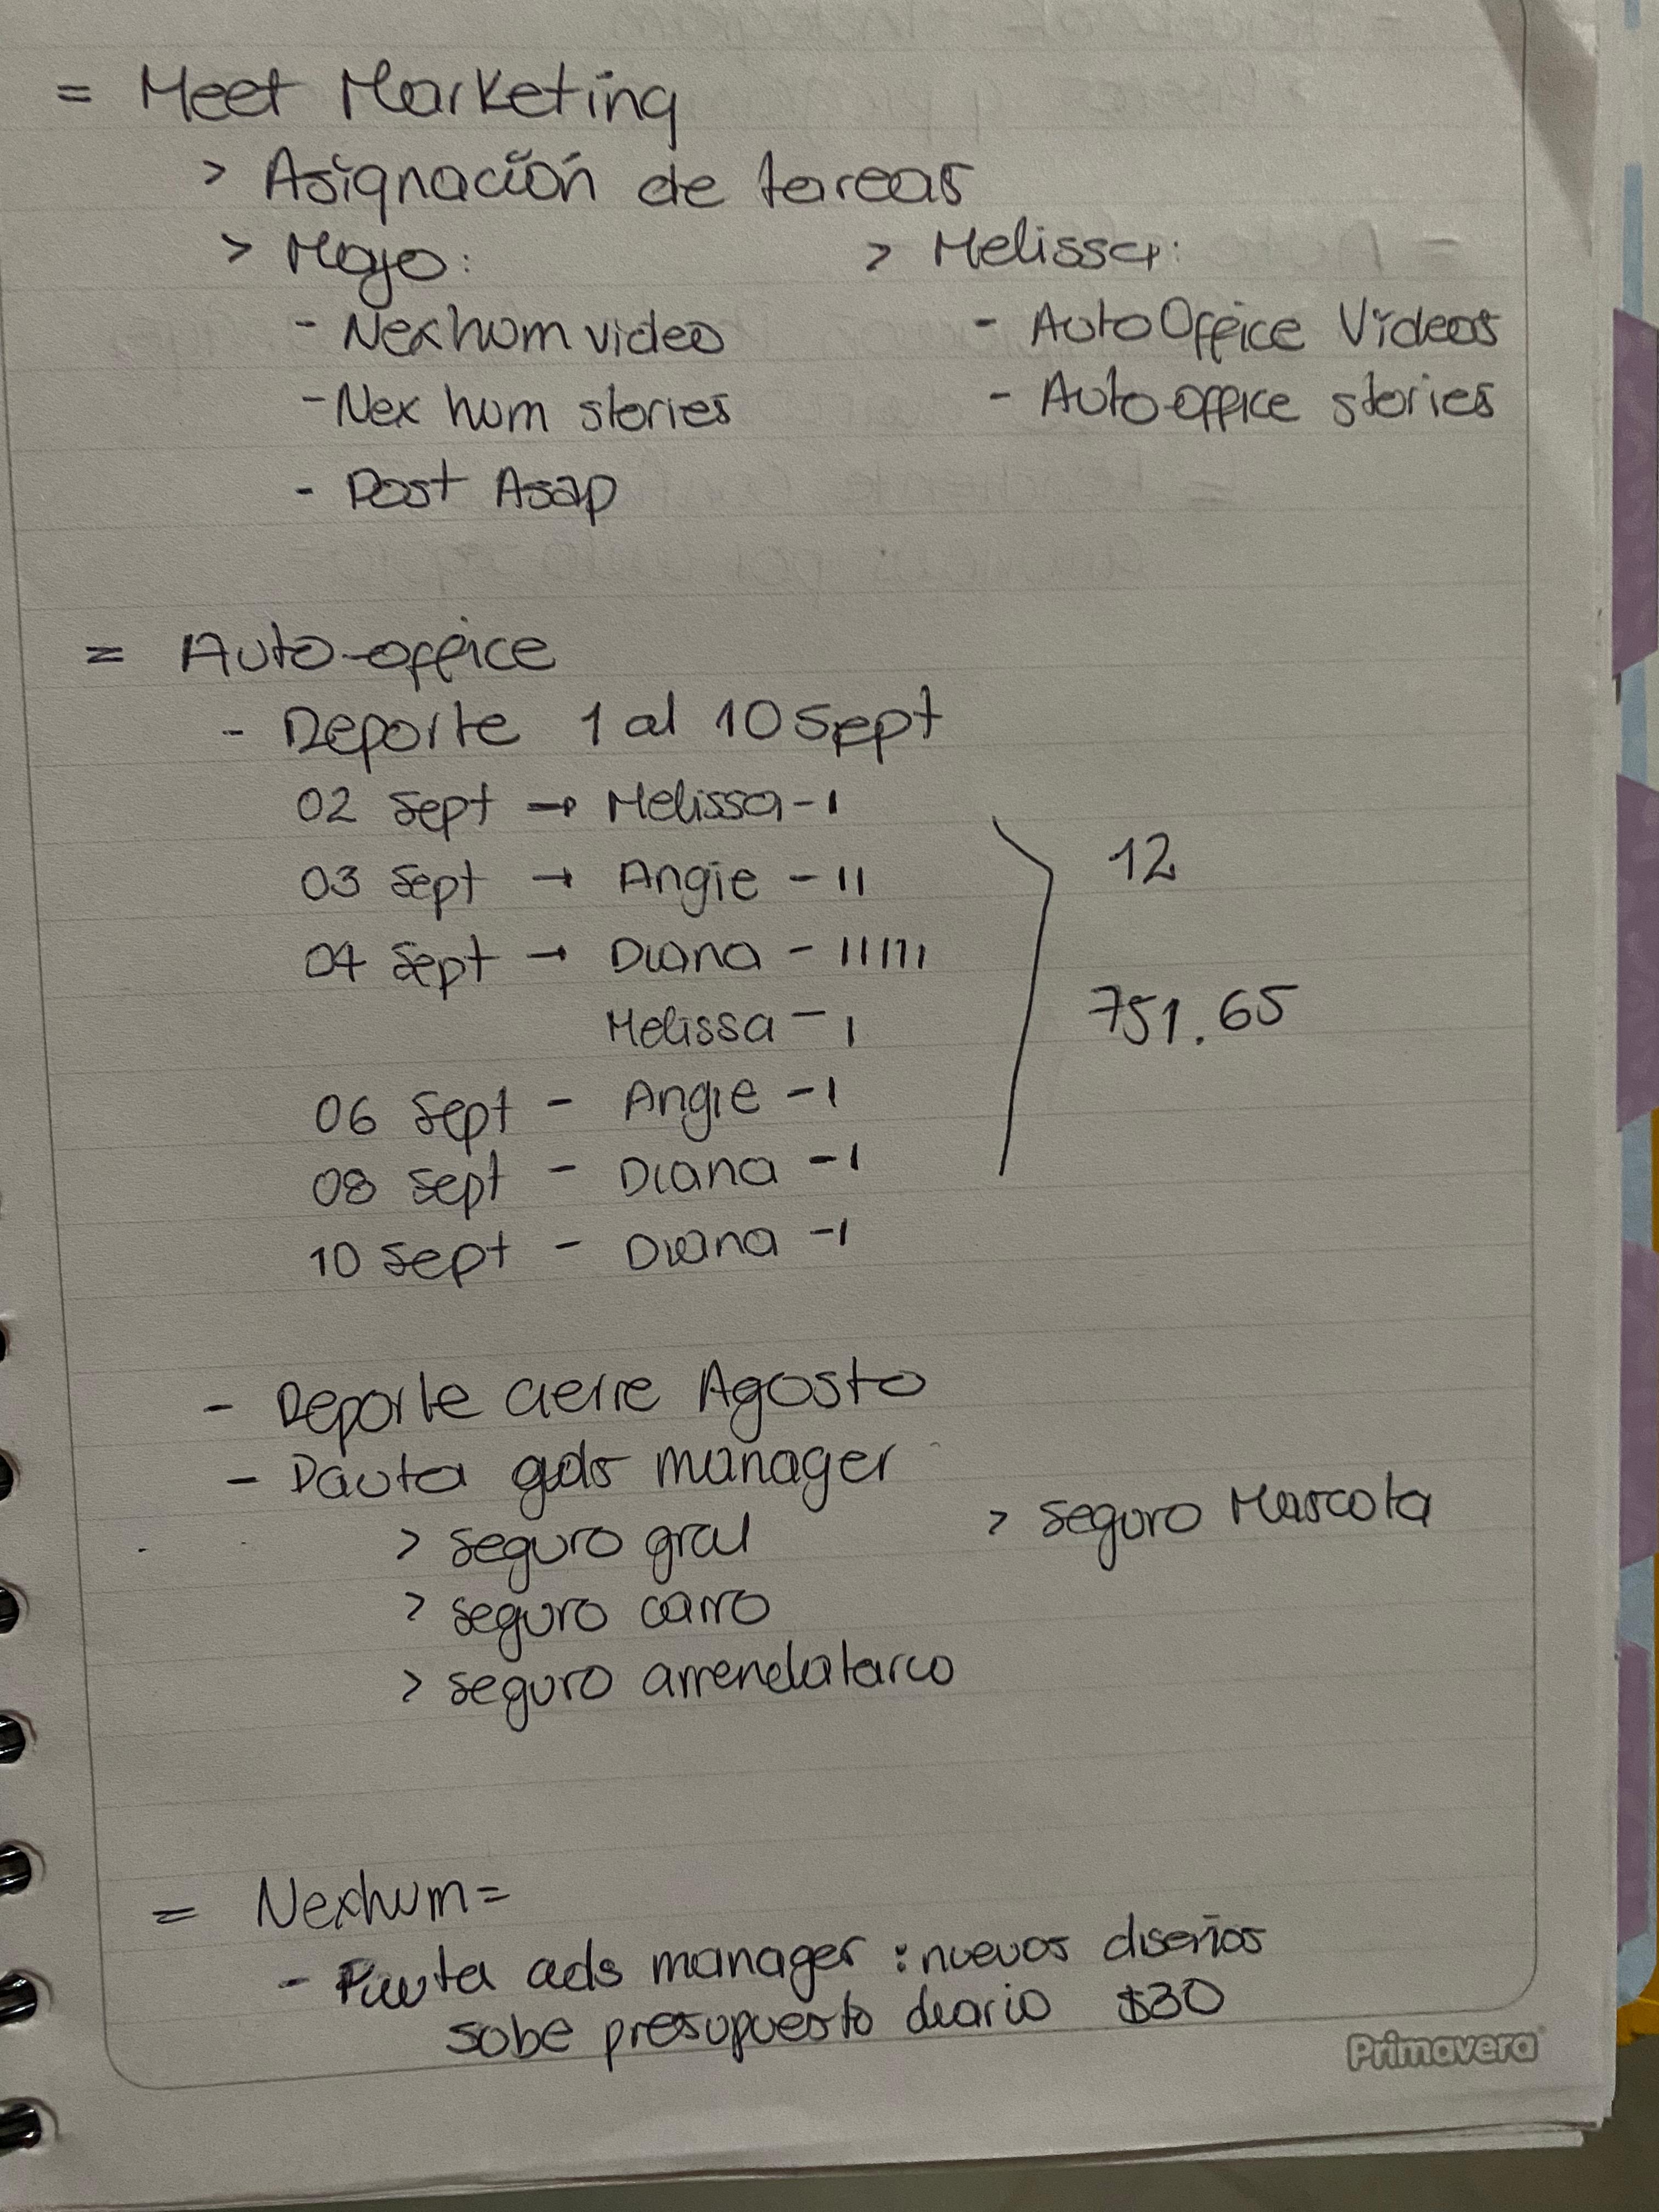 = Meet Marketing
> Asignación de tareas
> Majo: > Melissa:
- Nexhum video - AutoOffice Videos
- Nex hum stories - Auto-office stories
- Post Asap
= Auto-office
- Reporte 1 al 10 Sept
02 Sept → Melissa - I
03 Sept → Angie - II
04 Sept → Diana - IIIII
Melissa - I
06 Sept - Angie - I
08 Sept - Diana - I
10 Sept - Diana - I
12
751.65
- Reporte cierre Agosto
- Pauta ads manager
> seguro gral > seguro Mascota
> seguro carro
> seguro arrendatario
= Nexhum =
- Pauta ads manager : nuevos diseños
sobe presupuesto diario $30
Primavera